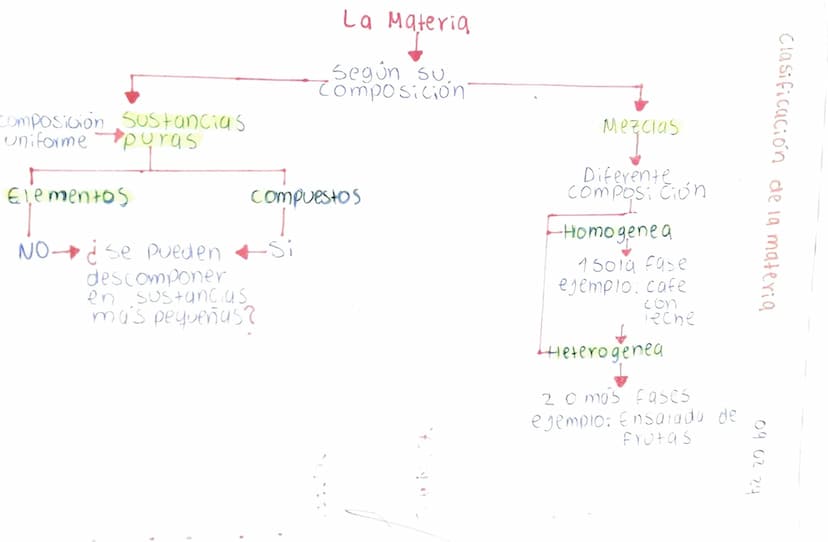 La Materia
Según su
composición
composición
uniforme
Sustancias
puras
Mezclas
Elementos
compuestos
NO
Si
¿se pueden
descomponer
en sustancias
más pequeñas?
Diferente
composición
Homogenea
1 sola fase
ejemplo: cafe
con
leche
Heterogenea
2 o más fases
ejemplo: Ensalada de
frutas
Clasificación de la materia
09 02 24